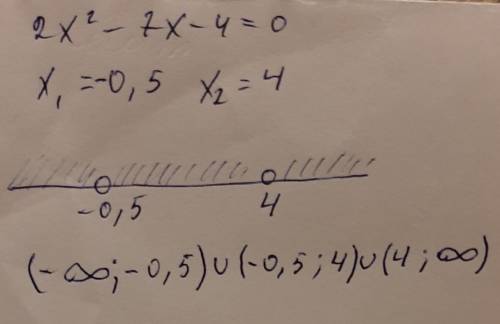 2x² - 7x - 4 = 0
x₁ = -0,5 x₂ = 4
-0,5 4
(-∞; -0,5) ∪ (-0,5; 4) ∪ (4; ∞)